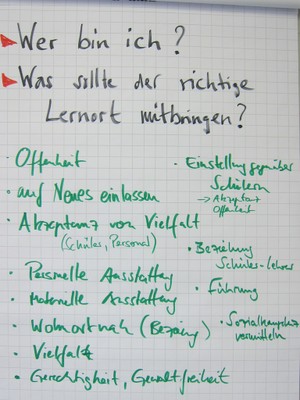 Wer bin ich?
Was sollte der richtige
Lernort mitbringen?
· Offenheit
· auf Neues einlassen
· Akzeptanz von Vielfalt
(Schüler, Personal)
· Personelle Ausstattung
· Materielle Ausstattung
· Wohnortnah (Beziehung)
· Vielfalt
· Gerechtigkeit, Gewaltfreiheit
· Einstellung gegenüber
Schülern
→ Akzeptanz
Offenheit
· Beziehung
Schüler-Lehrer
· Führung
· Sozialkompetenz
vermitteln